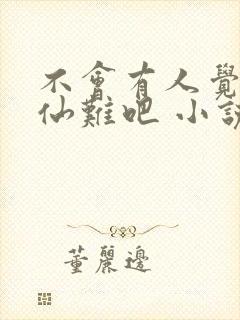 不會有人覺
仙難吧 小說
董麗邊